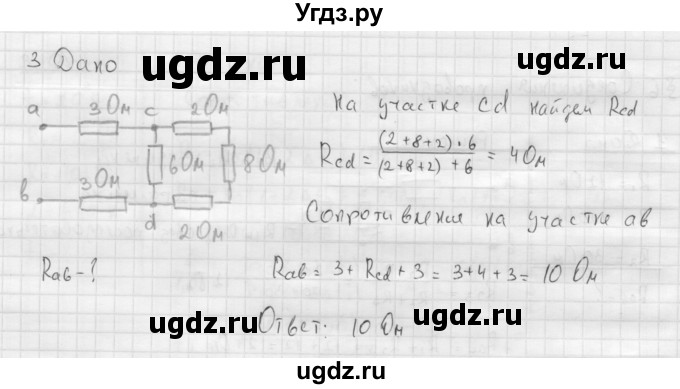 Угдз.ру
3 Дано
ugdz.ru
ugdz.ru
a 3 Ом c 2 Ом
6 Ом 8 Ом
в 3 Ом d 2 Ом
На участке Cd найдем Rcd
Rcd = (2+8+2)·6 / (2+8+2)+6 = 4 Ом
ugdz.ru
Сопротивление на участке ав
Rав-?
Rав = 3 + Rcd + 3 = 3+4+3 = 10 Ом
ugdz.ru
ugdz.ru
Ответ: 10 Ом
ugdz.ru